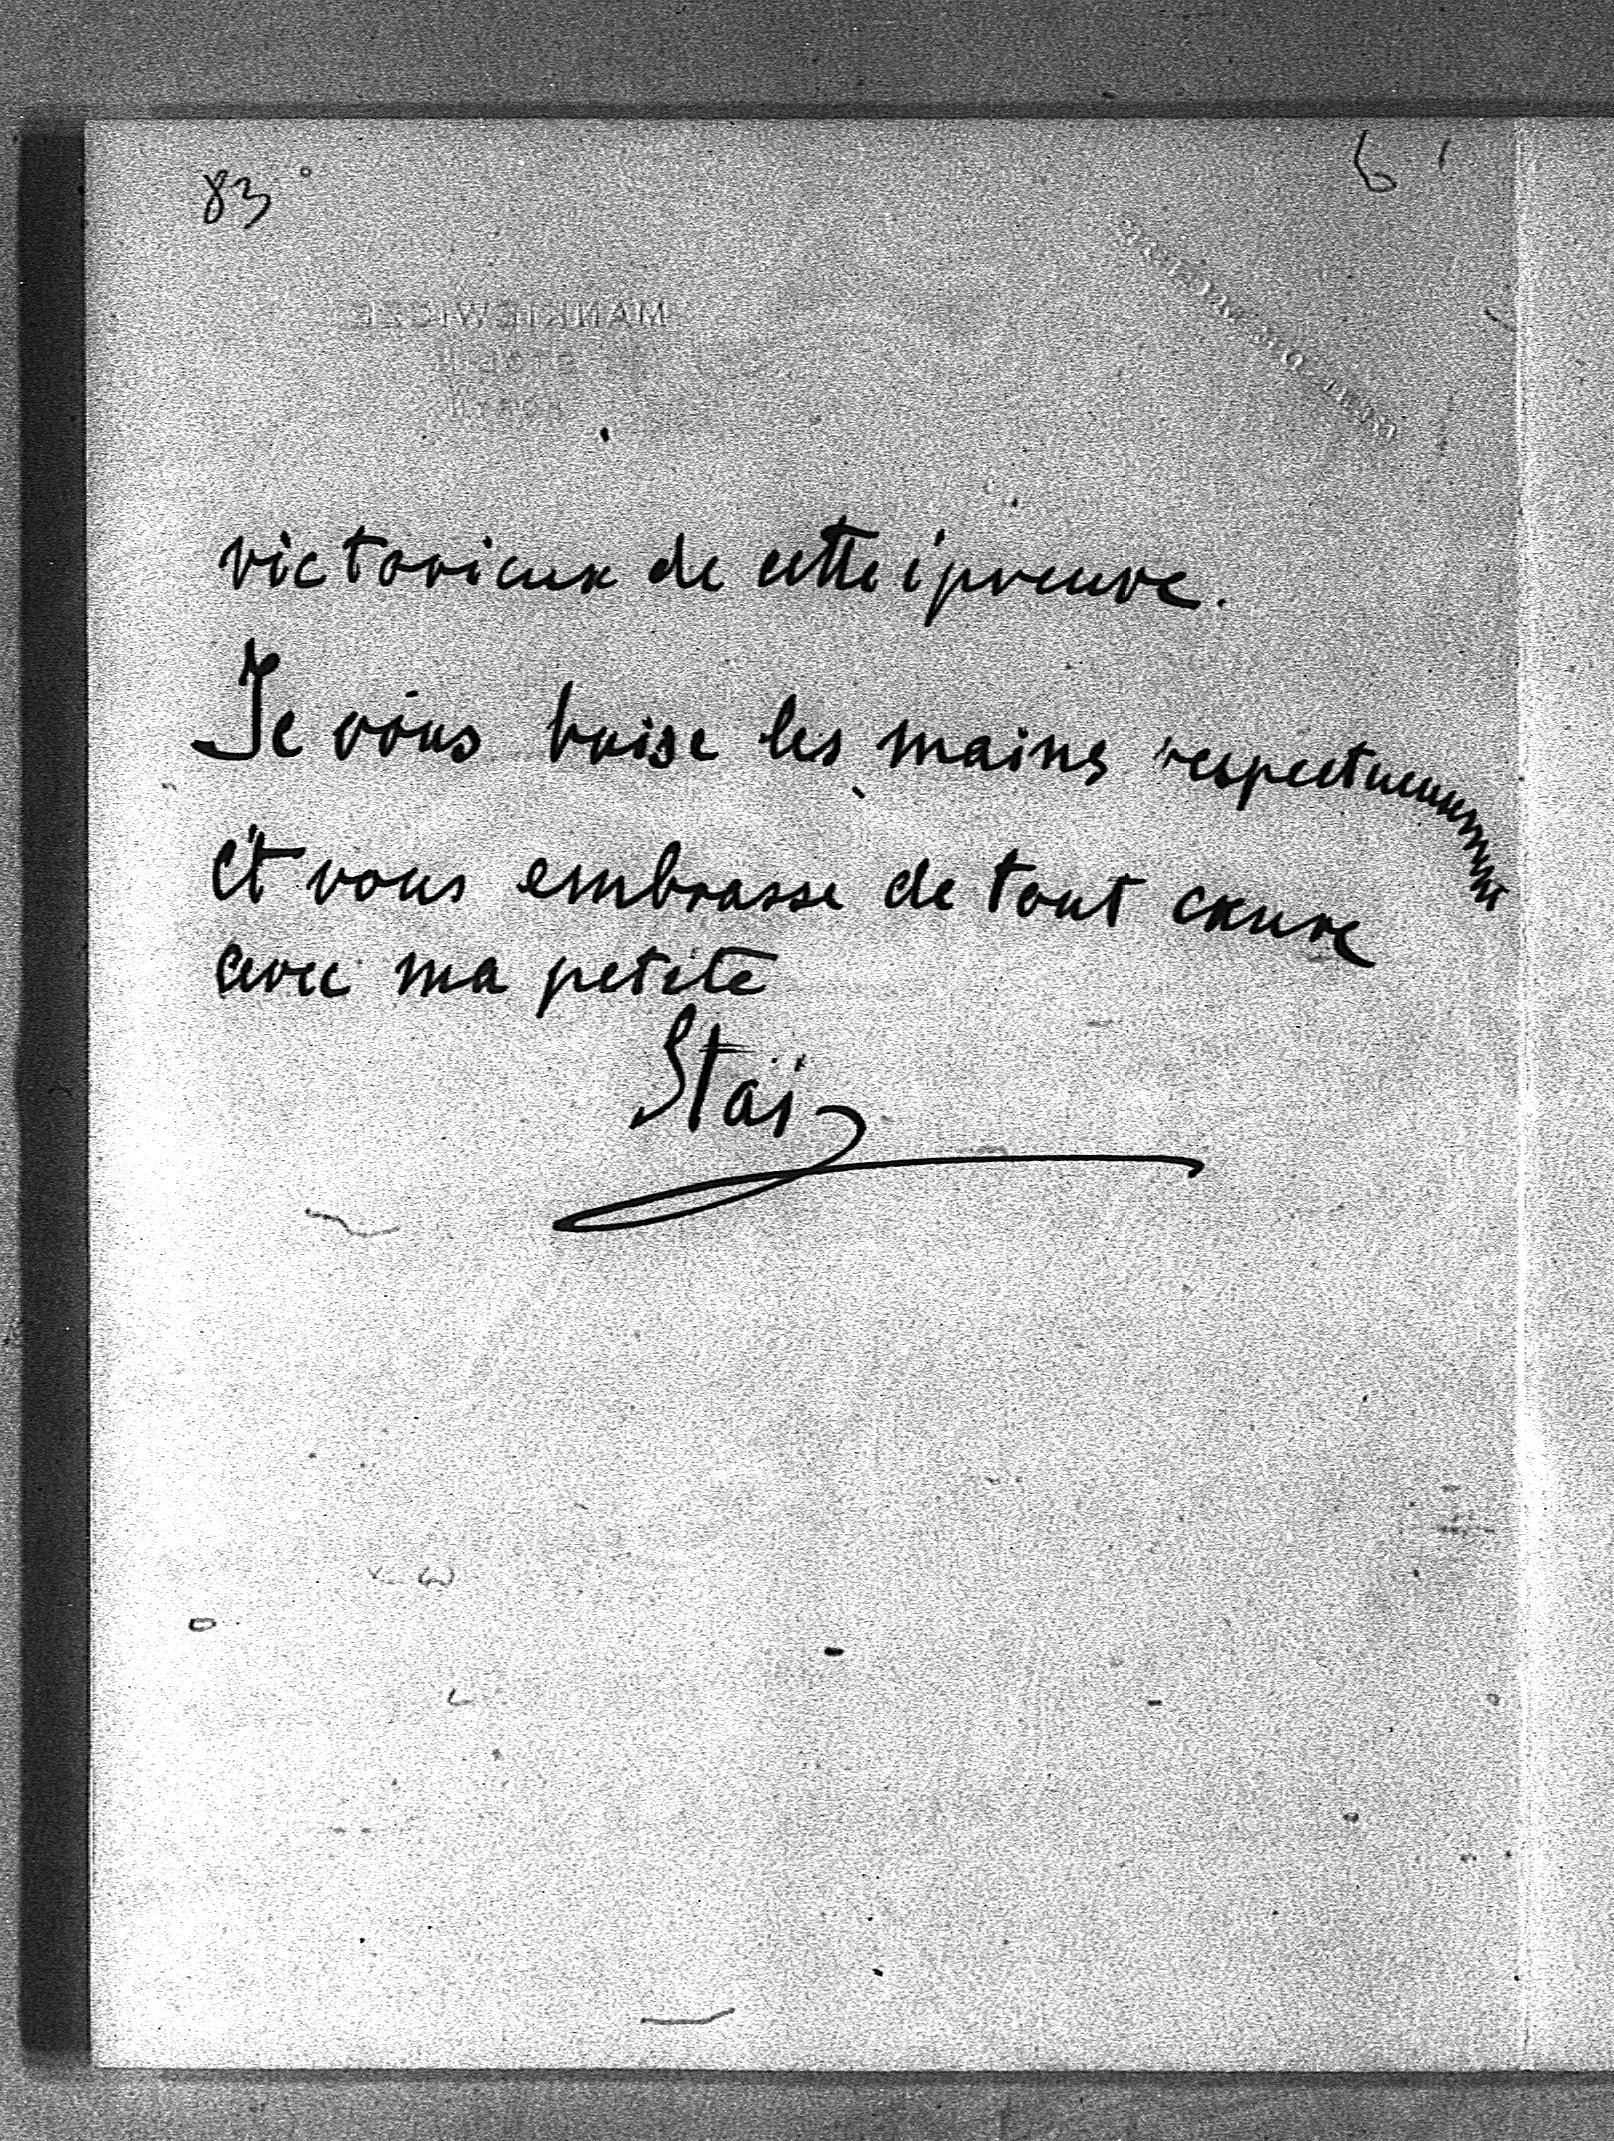 83
6
victorieux de cette épreuve.
Je vous baise les mains respectueusement
Et vous embrasse de tout cœur
avec ma petite
Staï